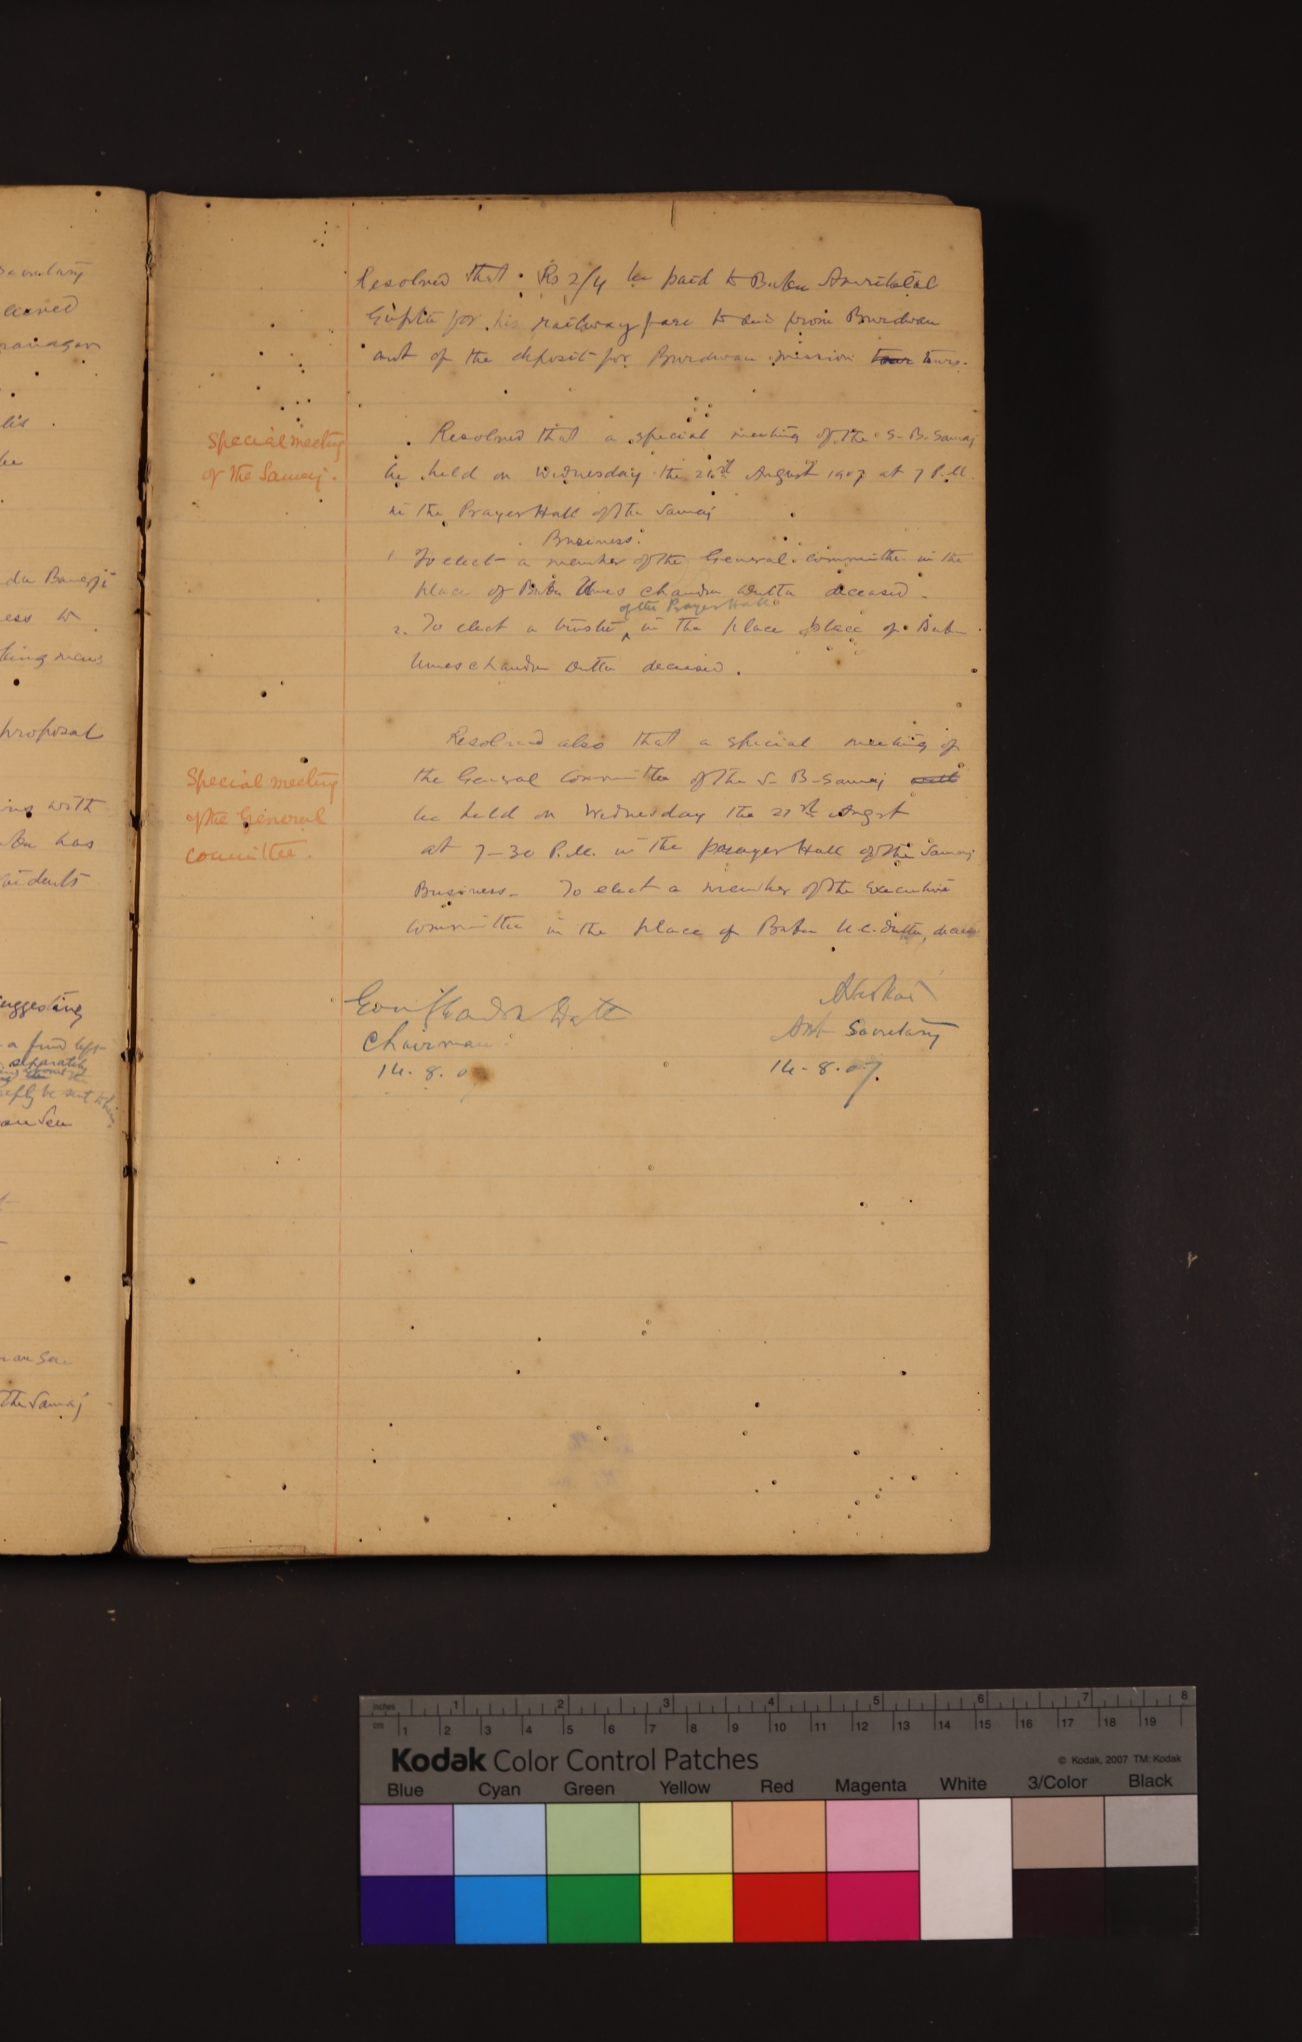 Secretary
ranagar
da Banerji
ess to
king news
proposal
ing with
has
suggesting
a fund left
separately
an Sen
the Samaj
Resolved that Rs 2/4 be paid to Babu Amritalal
Gupta for his railway fare to and from Burdwan
out of the deposit for Burdwan mission tour tour.
Special meeting
of the Samaj.
Resolved that a special meeting of the S. B. Samaj
be held on Wednesday the 21st August 1907 at 7 P.M.
in the Prayer Hall of the Samaj
Business.
1 To elect a member of the General committee in the
place of Babu Umes Chandra Dutta deceased.
of the Prayer Hall
2. To elect a trustee in the place place of Babu
Umes Chandra Dutta deceased.
Special meeting
of the General
committee.
Resolved also that a special meeting of
the General Committee of the S. B. Samaj
be held on Wednesday the 21st August
at 7-30 P.M. in the prayer Hall of the Samaj
Business - To elect a member of the Executive
Committee in the place of Babu U.C. Dutta,
Chairman
14.8.07
Asst Secretary
14-8-07.
inches 1 2 3 4 5 6 7 8
cm 1 2 3 4 5 6 7 8 9 10 11 12 13 14 15 16 17 18 19
Kodak Color Control Patches
© Kodak, 2007 TM: Kodak
Blue Cyan Green Yellow Red Magenta White 3/Color Black